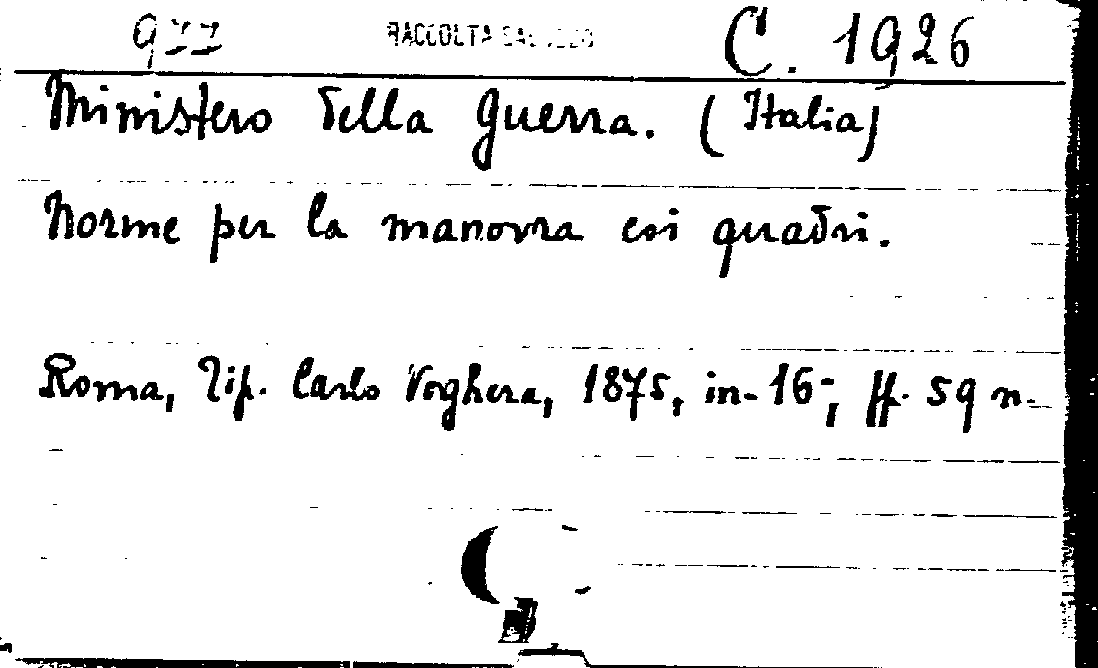 977 RACCOLTA C. 1926
Ministero della guerra. (Italia)
Norme per la manovra coi quadri.
Roma, Tip. Carlo Voghera, 1875, in-16-, pp. 59 n.